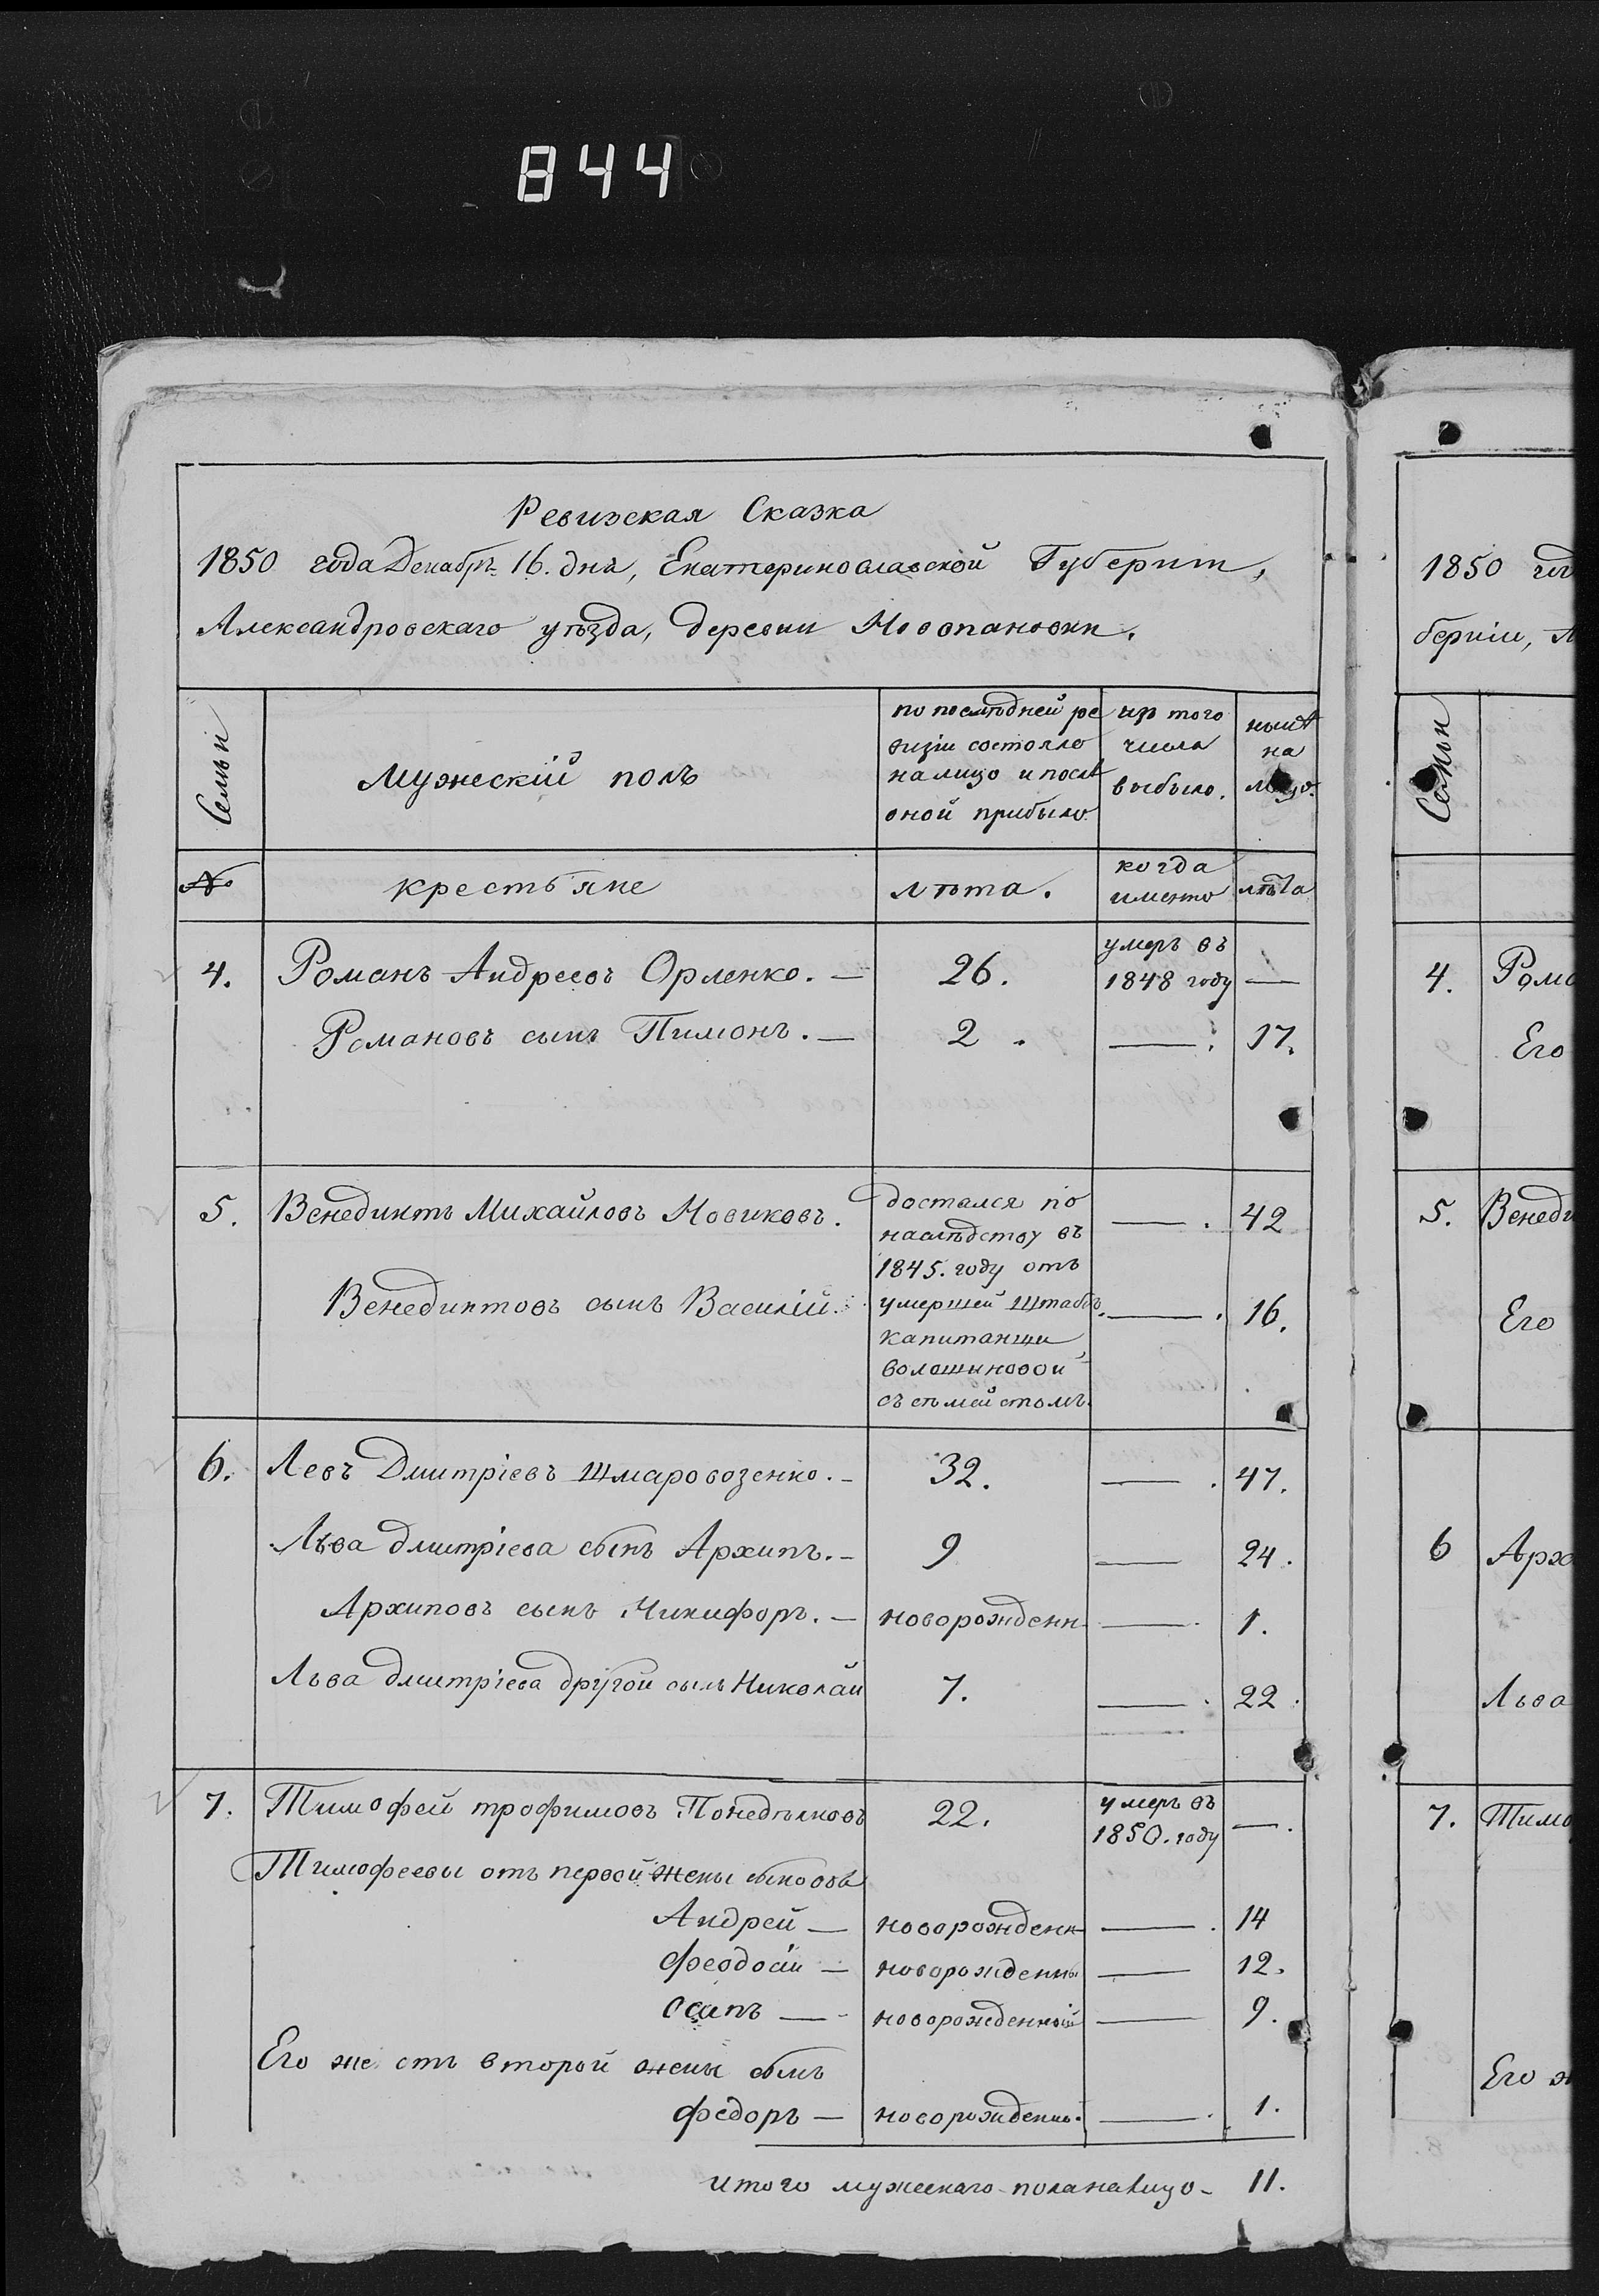 844
Ревизская Сказка
1850 года Декабръ 16. дня, Екатеринославской Губерніи,
Александровскаго уѣзда, деревни Новопановки.
Семьи
Мужескій полъ
по послѣдней ре
визіи состояло
на лицо и послѣ
оной прибыло.
изъ того
числа
выбыло.
нынѣ
на
лицо.
№
крестьяне
лѣта.
когда
именно
лѣта
4. Романъ Андреевъ Орленко. — 26. умеръ въ 1848 году —
Романовъ сынъ Пимонъ. — 2. — 17.
5. Венедиктъ Михайловъ Новиковъ. — 42
Венедиктовъ сынъ Василій. — 16.
достался по
наслѣдству въ
1845. году отъ
умершей Штабсъ
капитанши
Волошиновой
съ сѣмейстомъ.
6. Левъ Дмитріевъ Шмаровозенко. — 32. — 47.
Льва Дмитріева сынъ Архипъ. — 9 — 24.
Архиповъ сынъ Никифоръ. — новорожденн — 1.
Льва Дмитріева другой сынъ Николай 7. — 22.
7. Тимофей трофимовъ Понедѣлковъ 22. умеръ въ 1850. году —.
Тимофеевы отъ первой жены сыновья
Андрей — новорожденн — 14
Феодосій — новорожденны — 12.
Осипъ — новорожденный — 9.
Его же отъ второй жены сынъ
Федоръ — новорожденн. — 1.
Итого мужескаго пола налицо — 11.
1850 год
берніи, А
Семьи
4. Рома
Его
5. Венеди
Его
6 Архи
Льва
7. Тимо
Его ж